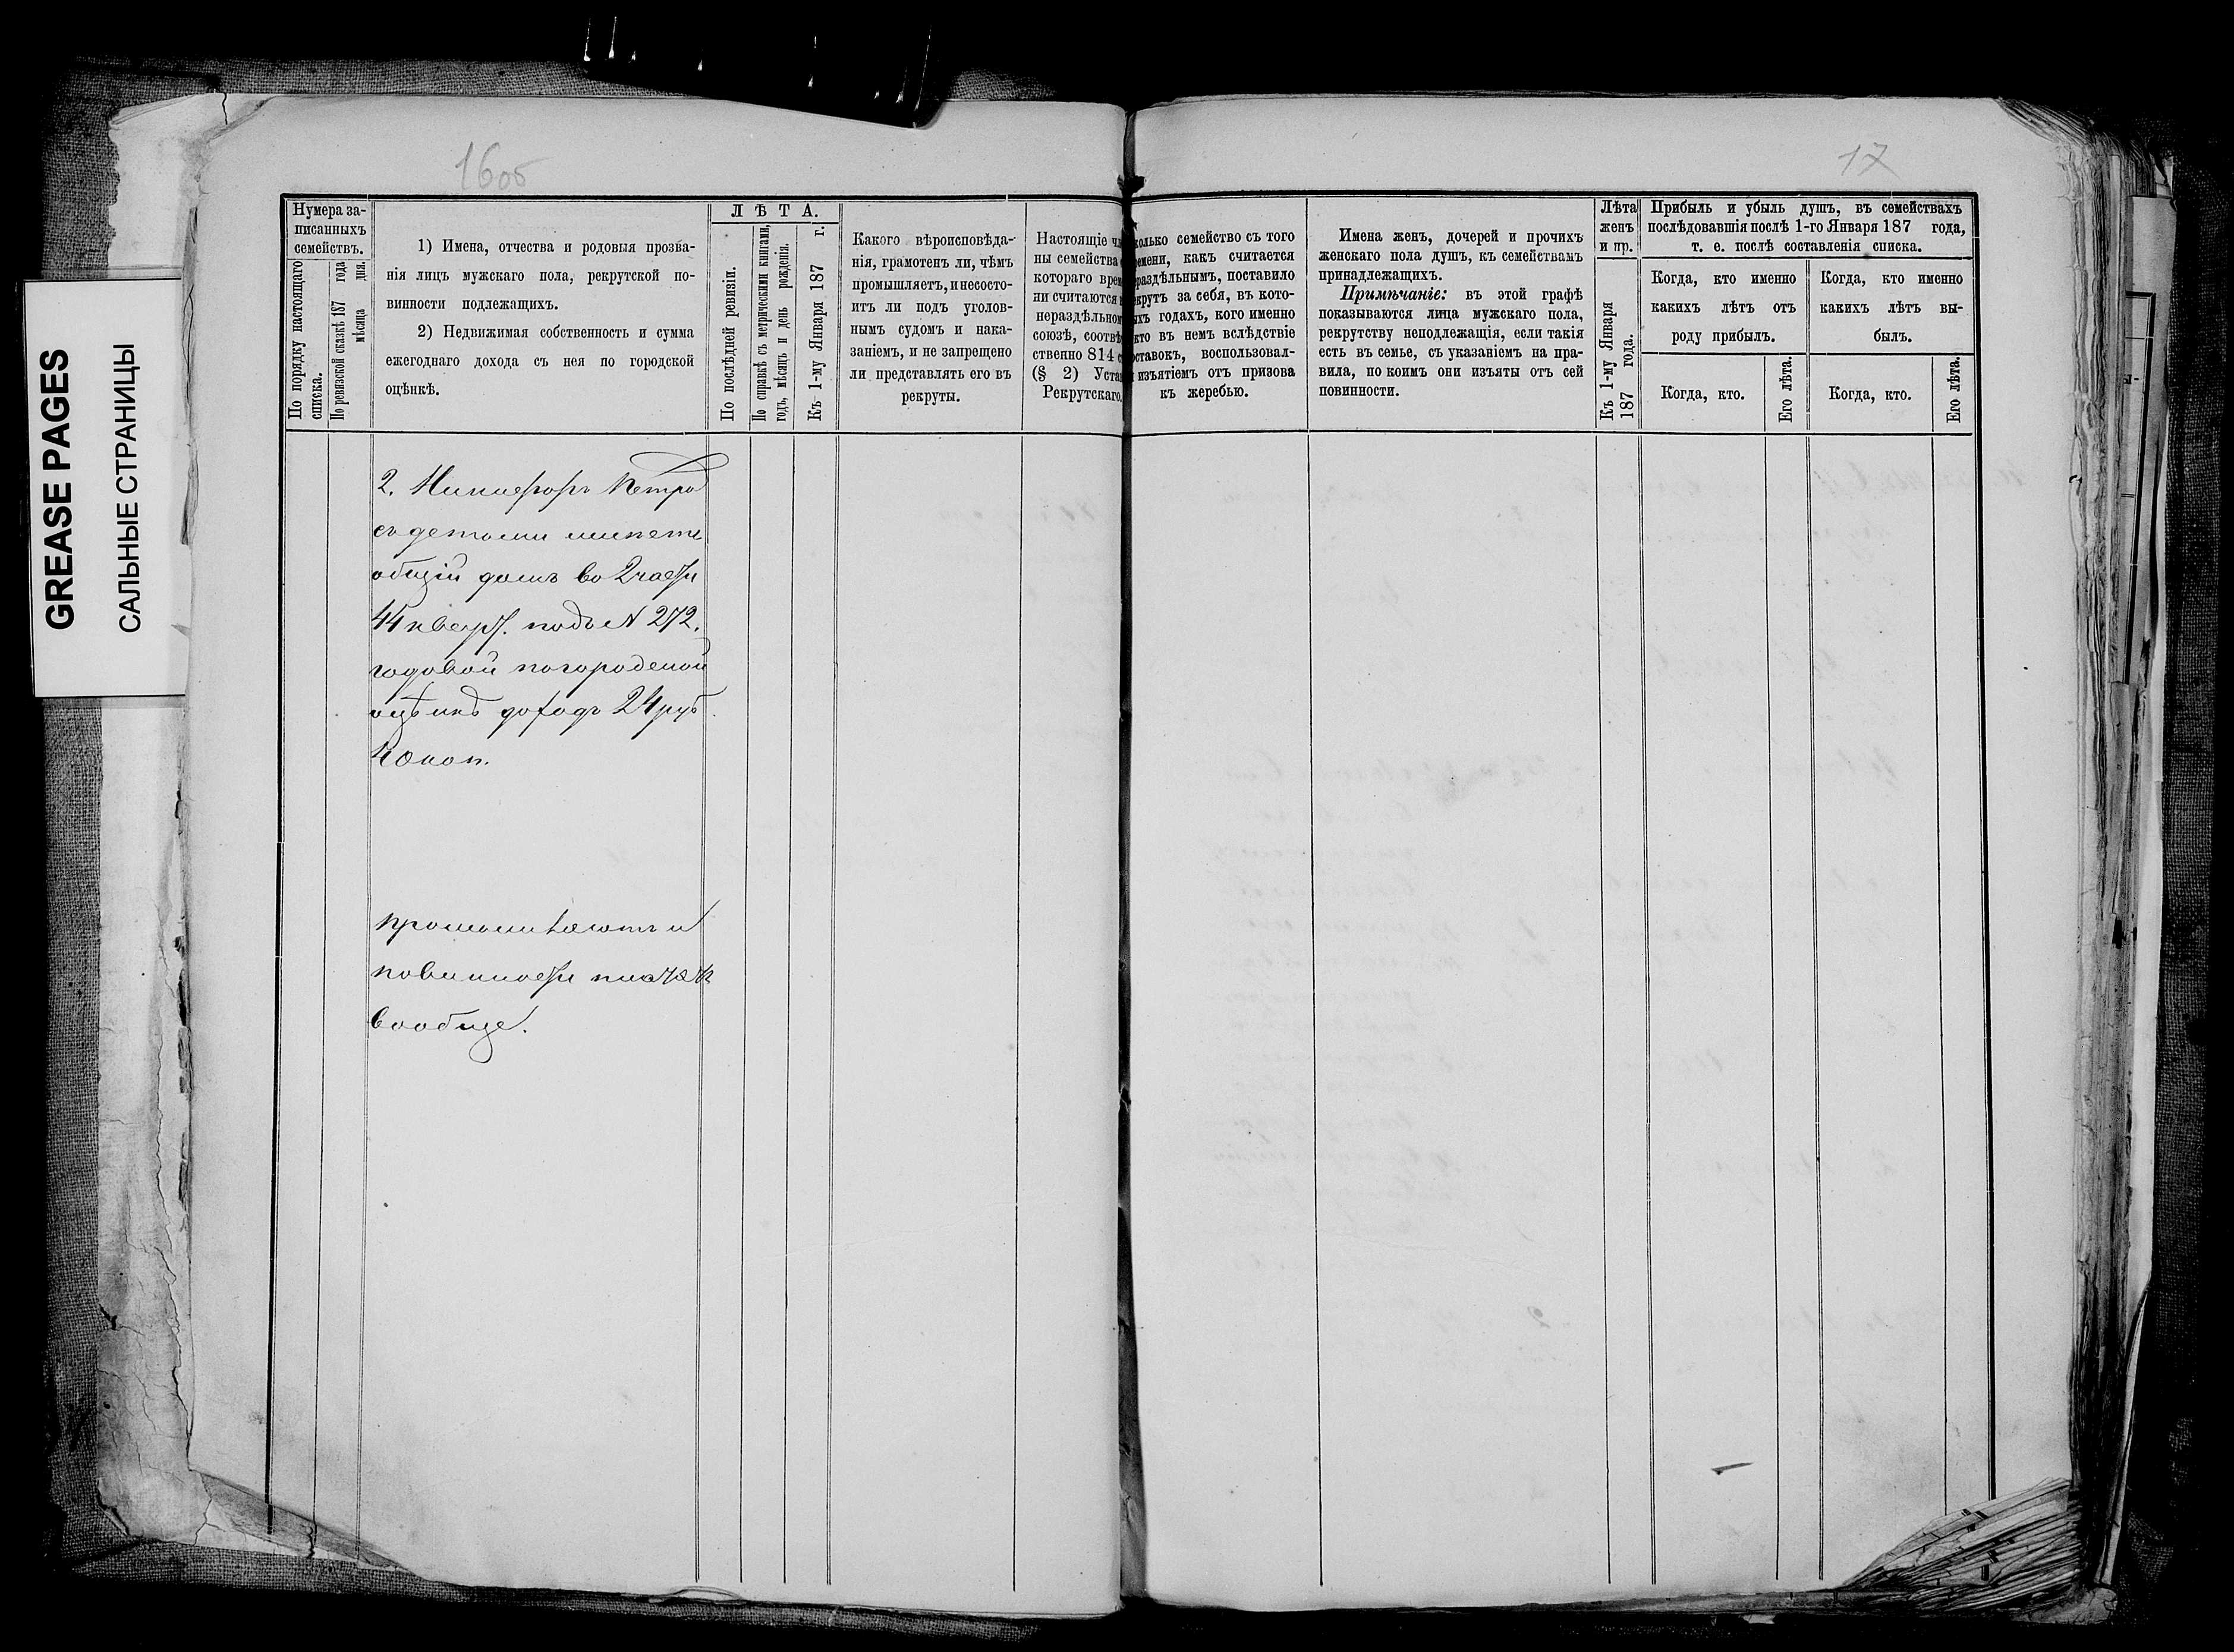 GREASE PAGES
САЛЬНЫЕ СТРАНИЦЫ
16об
17
Нумера за-
писанныхъ
семействъ.
По порядку настоящаго
списка.
По ревизской сказкѣ 187 года
мѣсяца дня.
1) Имена, отчества и родовыя прозва-
нія лицъ мужскаго пола, рекрутской по-
винности подлежащихъ.
2) Недвижимая собственность и сумма
ежегоднаго дохода съ нея по городской
оцѣнкѣ.
ЛѢТА.
По послѣдней ревизіи.
По справкѣ съ метрическими книгами,
годъ, мѣсяцъ и день рожденія.
Къ 1-му Января 187 г.
Какого вѣроисповѣда-
нія, грамотенъ ли, чѣмъ
промышляетъ, и несосто-
итъ ли подъ уголов-
нымъ судомъ и нака-
заніемъ, и не запрещено
ли представлять его въ
рекруты.
Настоящіе чл
ны семейства
котораго врем
ни считаются в
нераздѣльном
союзѣ, соотвѣ
ственно 814 с
(§ 2) Уста
Рекрутскаго.
олько семейство съ того
ремени, какъ считается
раздѣльнымъ, поставило
крутъ за себя, въ кото-
ыхъ годахъ, кого именно
кто въ немъ вслѣдствіе
оставокъ, воспользовал-
изъятіемъ отъ призова
къ жеребью.
Имена женъ, дочерей и прочихъ
женскаго пола душъ, къ семействамъ
принадлежащихъ.
Примѣчаніе: въ этой графѣ
показываются лица мужскаго пола,
рекрутству неподлежащія, если такія
есть въ семье, съ указаніемъ на пра-
вила, по коимъ они изъяты отъ сей
повинности.
Лѣта
женъ
и пр.
Къ 1-му Января
187 года.
Прибыль и убыль душъ, въ семействахъ
послѣдовавшія послѣ 1-го Января 187 года,
т. е. послѣ составленія списка.
Когда, кто именно
какихъ лѣтъ отъ
роду прибылъ.
Когда, кто именно
какихъ лѣтъ вы-
былъ.
Когда, кто.
Его лѣта.
Когда, кто.
Его лѣта.
2. Никифоръ Петро
съ детьми имеетъ
общій домъ во 2 части
44 кварт. подъ N 272.
годовой по городской
оцѣнкѣ доходъ 24 руб
40 коп.
промышляютъ и
повинности
вообще.